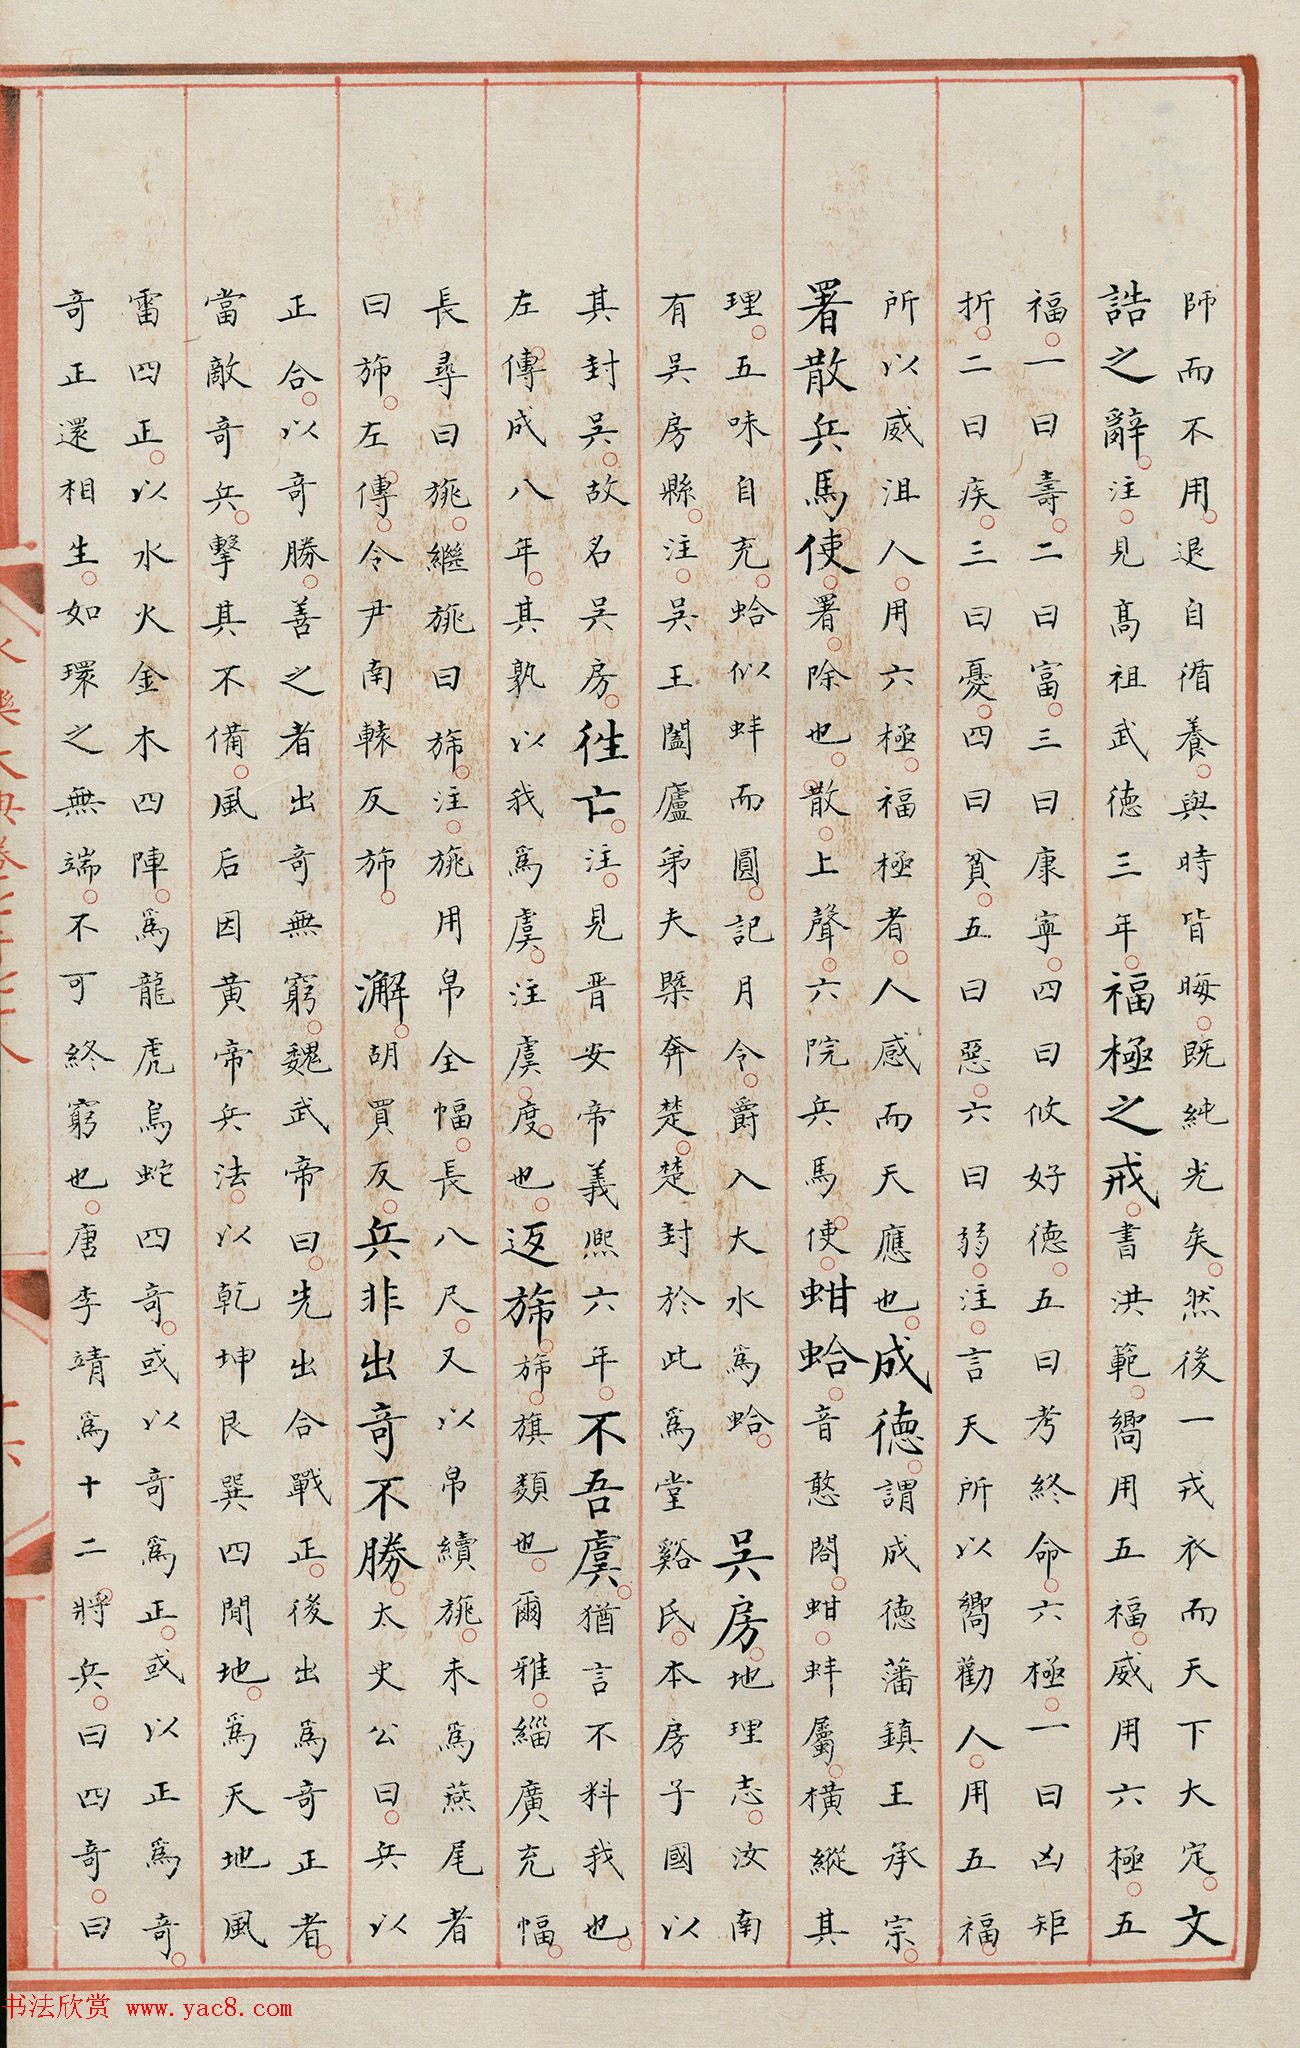 師而不用退自循養與時皆晦既純光矣然後一戎衣而天下大定文
誥之辭注見髙祖武德三年福極之戒書洪範嚮用五福威用六極五
福一曰壽二曰富三曰康寧四曰攸好德五曰考終命六極一曰凶矩
折二曰疾三曰憂四曰貧五曰惡六曰弱注言天所以嚮勸人用五福
所以威沮人用六極福極者人感而天應也成德謂成德藩鎮王承宗
署散兵馬使署除也散上聲六院兵馬使蚶蛤音憨閤蚶蚌屬橫縱其
理五味自充蛤似蚌而圓記月令爵入大水爲蛤 吳房地理志汝南
有吳房縣注吳王闔廬弟夫槩奔楚楚封於此爲堂谿氏本房子國以
其封吳故名吳房徃亡注見晋安帝義熈六年不吾虞猶言不料我也
左傳成八年其孰以我爲虞注虞度也返旆旆旗類也爾雅緇廣充幅
長尋曰旐繼旐曰旆注旐用帛全幅長八尺又以帛續旐末爲燕尾者
曰旆左傳令尹南轅反旆 澥胡買反兵非出奇不勝太史公曰兵以
正合以奇勝善之者出奇無窮魏武帝曰先出合戰正後出爲奇正者
當敵奇兵擊其不備風后因黃帝兵法以乾坤艮巽四閒地爲天地風
雷四正以水火金木四陣爲龍虎鳥蛇四奇或以奇爲正或以正爲奇
奇正還相生如環之無端不可終窮也唐李靖爲十二將兵曰四奇曰
书法欣赏 www.yac8.com